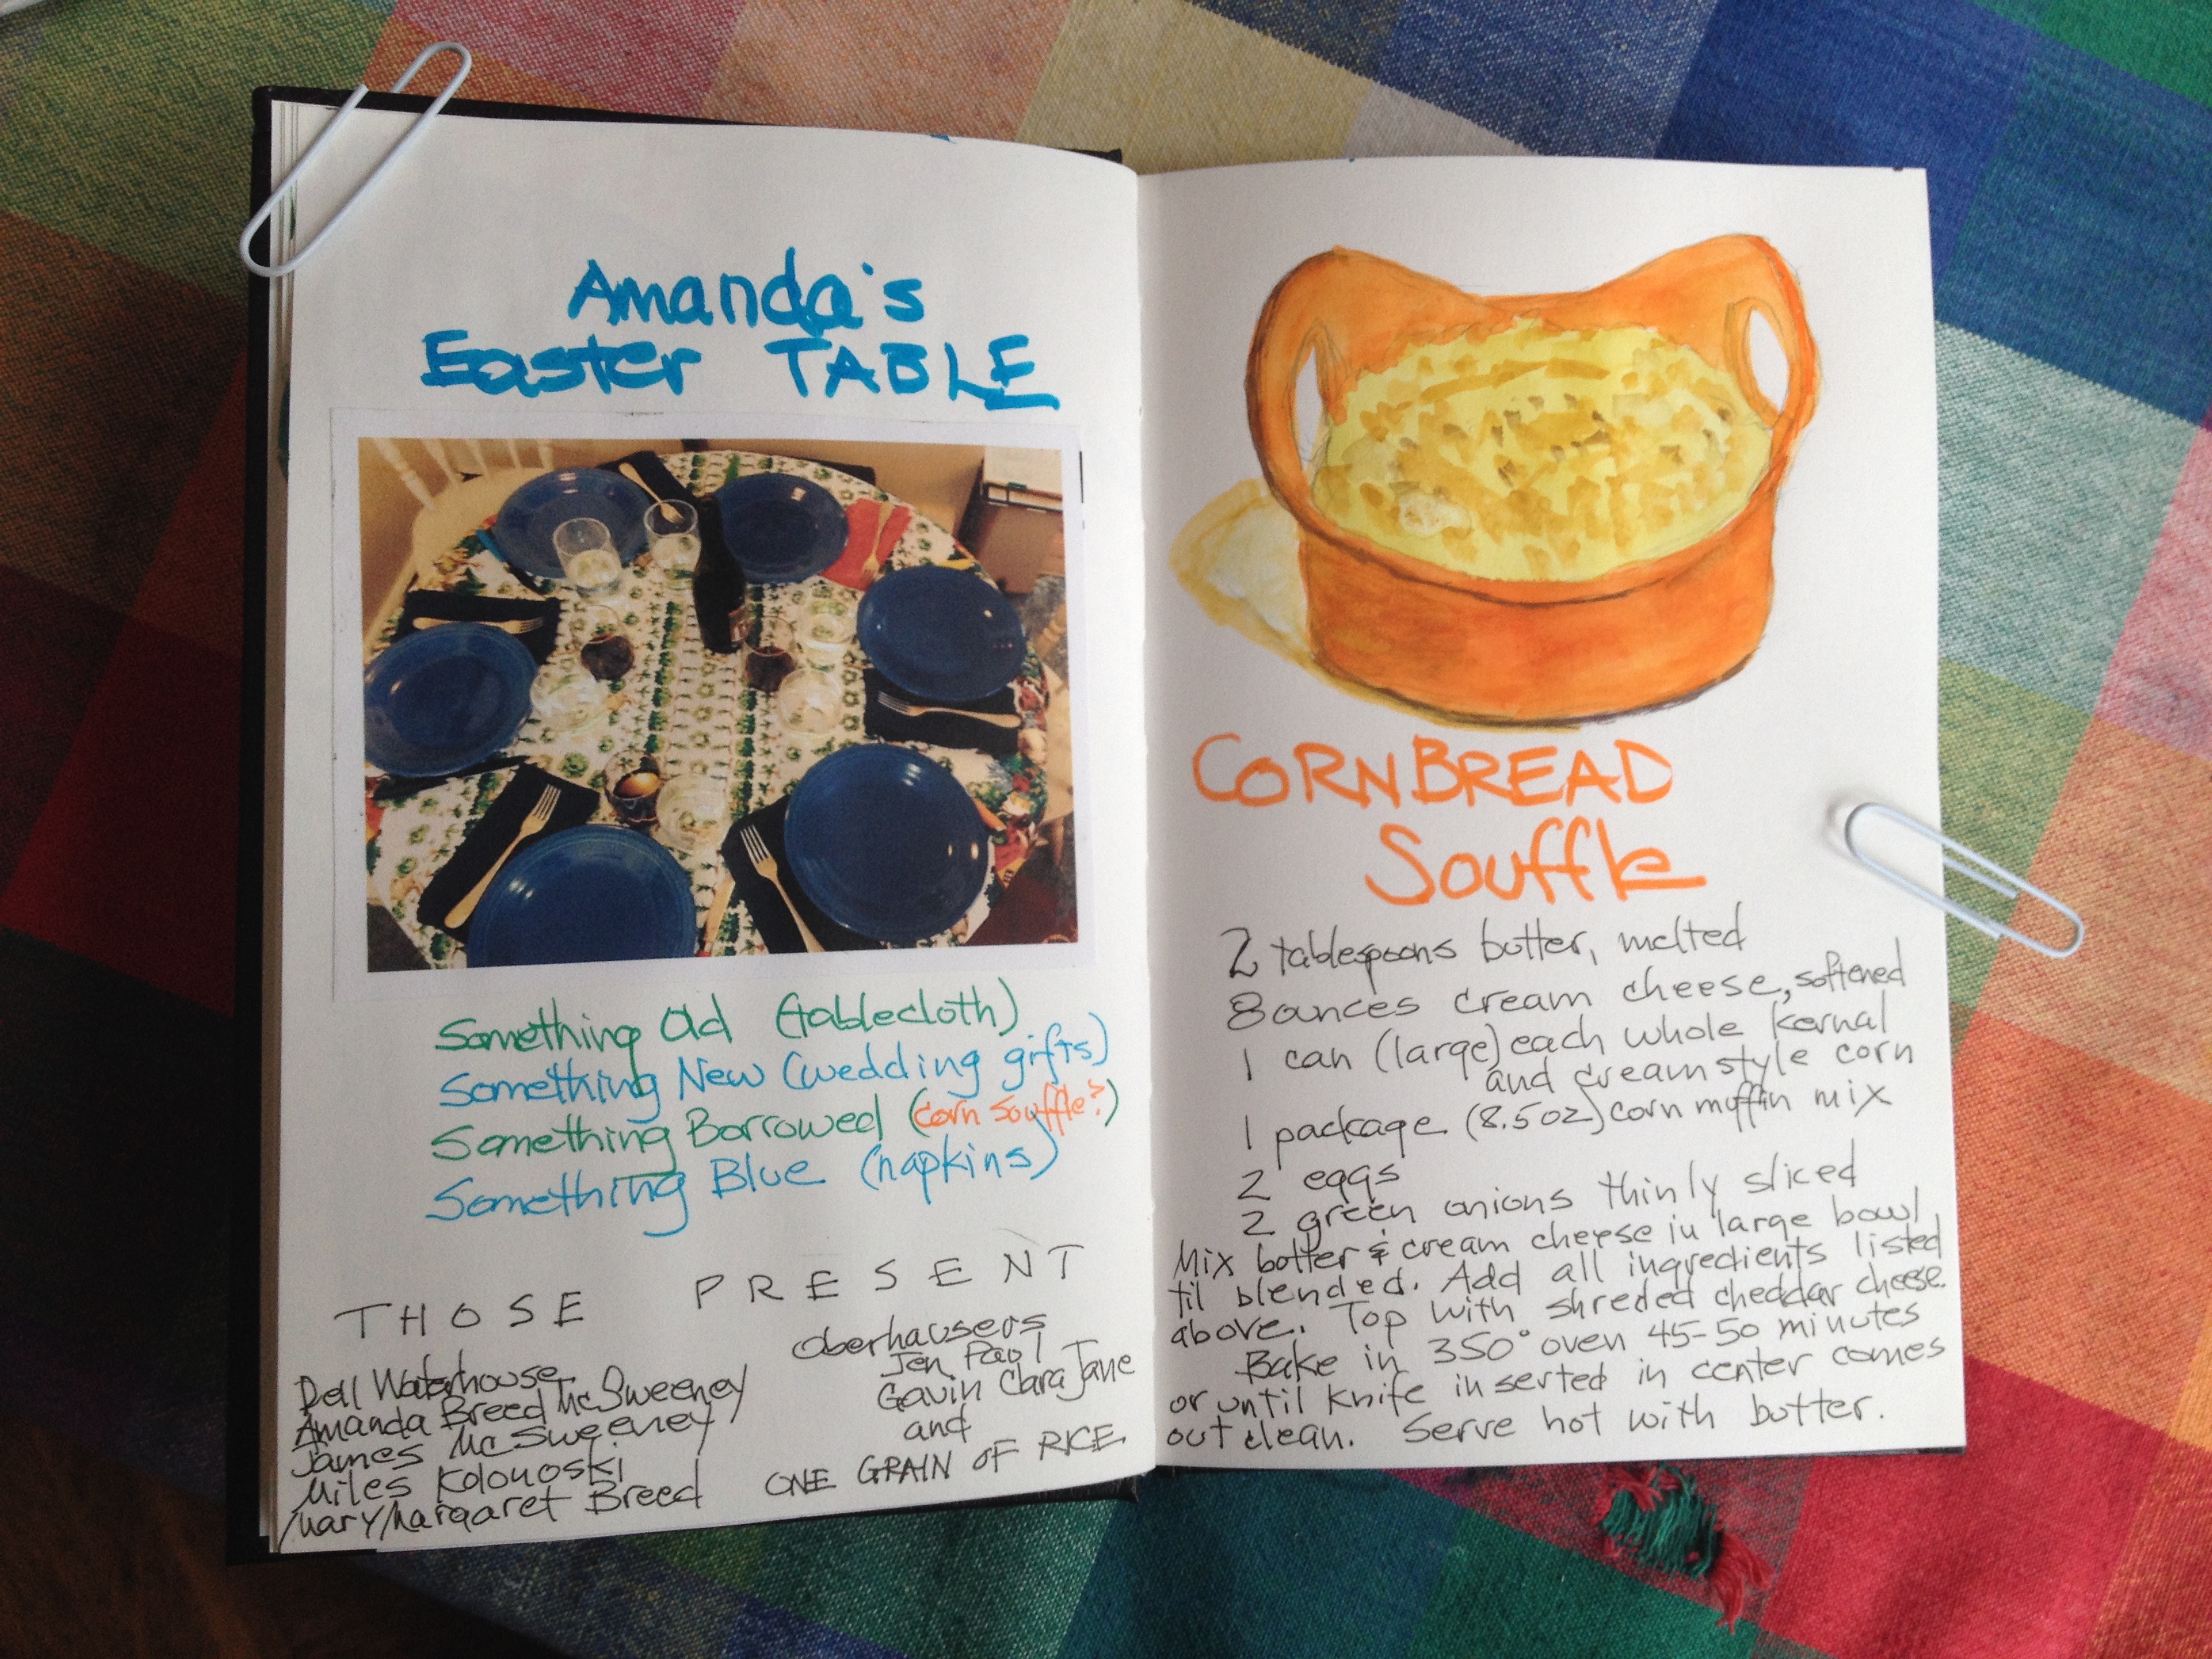 Amanda's
Easter TABLE
Something Old (tablecloth)
Something New (wedding gifts)
Something Borrowed (corn souffle?)
Something Blue (napkins)
THOSE PRESENT
Dell Waterhouse
Amanda Breed McSweeney
James McSweeney
Miles Kolonoski
Mary Margaret Breed
Oberhausers
Jen Paul
Gavin Clara Jane
and
ONE GRAIN OF RICE
CORNBREAD
Souffle
2 tablespoons butter, melted
8 ounces cream cheese, softened
1 can (large) each whole kernal
and creamstyle corn
1 package (8.5oz) corn muffin mix
2 eggs
2 green onions thinly sliced
Mix botter & cream cheese in large bowl
til blended. Add all ingredients listed
above. Top with shreded cheddar cheese.
Bake in 350° oven 45-50 minutes
or until knife inserted in center comes
out clean. Serve hot with butter.